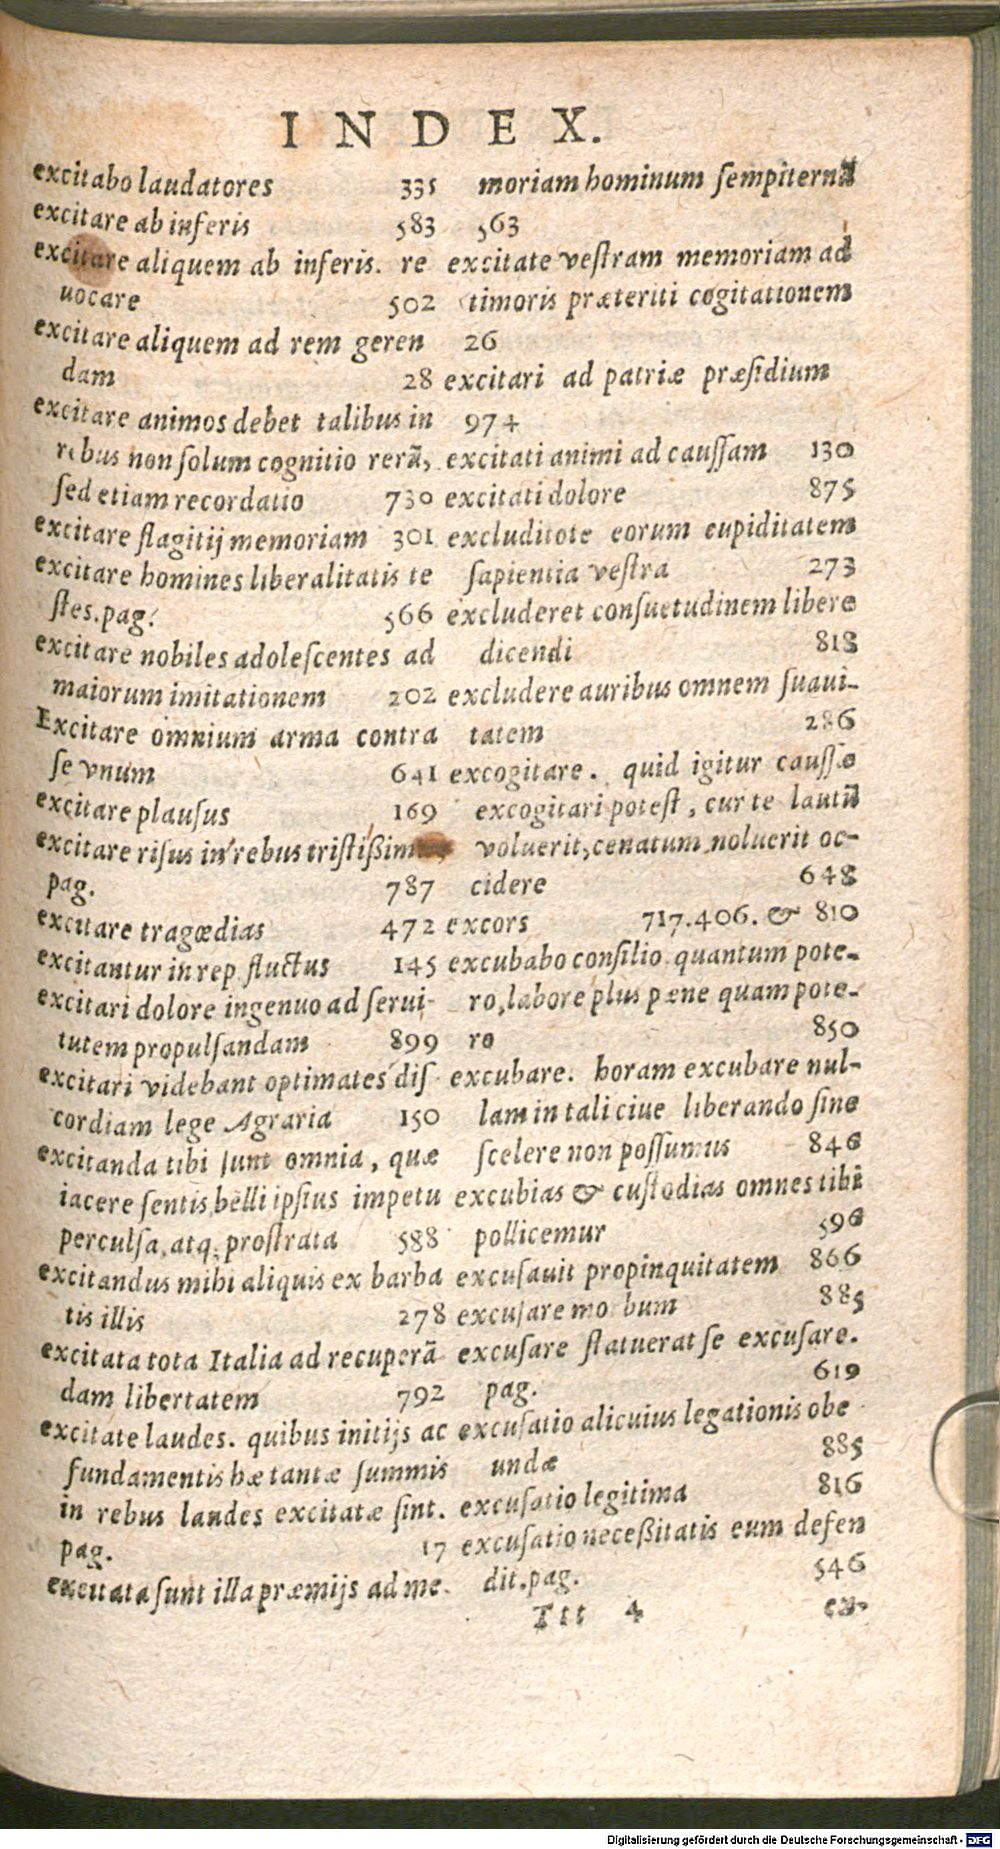 INDEX.
excitabo laudatores 335
excitare ab inferis 583
excitare aliquem ab inferis. re
uocare 502
excitare aliquem ad rem geren
dam 28
excitare animos debet talibus in
rebus non solum cognitio rerũ,
sed etiam recordatio 730
excitare flagitij memoriam 301
excitare homines liberalitatis te
stes. pag. 566
excitare nobiles adolescentes ad
maiorum imitationem 202
Excitare omnium arma contra
se vnum 641
excitare plausus 169
excitare risus in rebus
pag. 787
excitare tragœdias 472
excitantur in rep. fluctus 145
excitari dolore ingenuo ad serui-
tutem propulsandam 899
excitari videbant optimates dis
cordiam lege Agraria 150
excitanda tibi sunt omnia, quæ
iacere sentis, belli ipsius impetu
perculsa, atq; prostrata 588
excitandus mihi aliquis ex barba
tis illis 278
excitata tota Italia ad recuperã
dam libertatem 792
excitate laudes. quibus initijs ac
fundamentis hæ tantæ summis
in rebus laudes excitatæ sint.
pag. 17
excitata sunt illa præmijs ad me-
moriam hominum sempiternã
563
excitate vestram memoriam ad
timoris præteriti cogitationem
26
excitari ad patriæ præsidium
974
excitati animi ad caussam 130
excitati dolore 875
excluditote eorum cupiditatem
sapientia vestra 273
excluderet consuetudinem libere
dicendi 818
excludere auribus omnem suaui-
tatem 286
excogitare. quid igitur caussæ
excogitari potest, cur te lautũ
voluerit, cenatum noluerit oc-
cidere 648
excors 717.406. & 810
excubabo consilio quantum pote-
ro, labore plus pæne quam pote-
ro 850
excubare. horam excubare nul-
lam in tali ciue liberando sine
scelere non possumus 846
excubias & custodias omnes tibi
pollicemur 596
excusauit propinquitatem 866
excusare morbum 885
excusare statuerat se excusare.
pag. 619
excusatio alicuius legationis obe
undæ 885
excusatio legitima 816
excusatio necessitatis eum defen
dit. pag. 546
Ttt 4 ex-
Digitalisierung gefördert durch die Deutsche Forschungsgemeinschaft - DFG